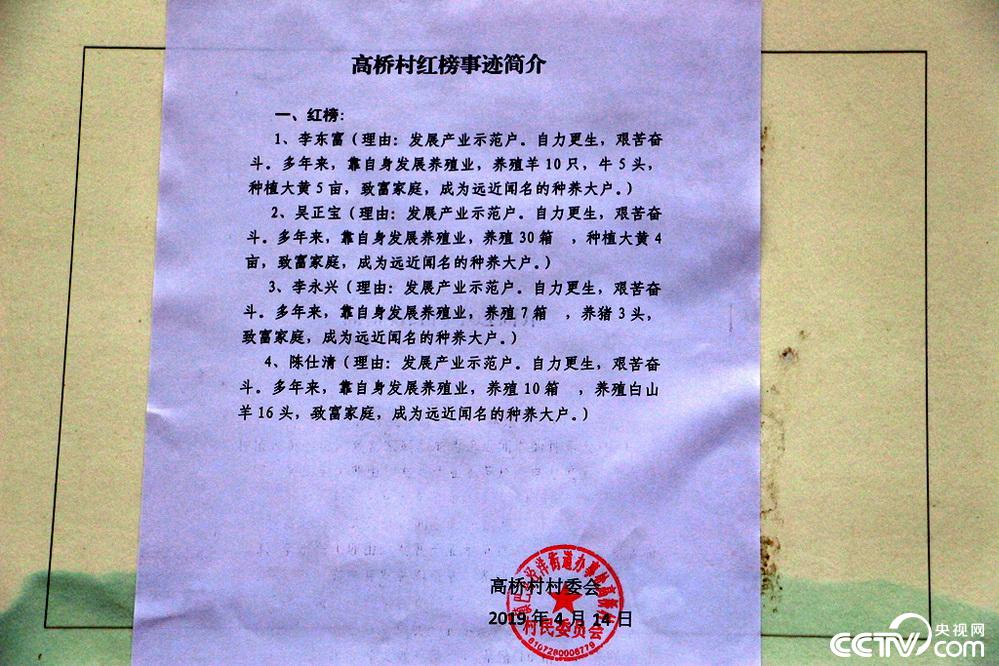 高桥村红榜事迹简介
一、红榜：
1、李东富（理由：发展产业示范户。自力更生，艰苦奋
斗。多年来，靠自身发展养殖业，养殖羊10只，牛5头，
种植大黄5亩，致富家庭，成为远近闻名的种养大户。）
2、吴正宝（理由：发展产业示范户。自力更生，艰苦奋
斗。多年来，靠自身发展养殖业，养殖30箱 ，种植大黄4
亩，致富家庭，成为远近闻名的种养大户。）
3、李永兴（理由：发展产业示范户。自力更生，艰苦奋
斗。多年来，靠自身发展养殖业，养殖7箱 ，养猪3头，
致富家庭，成为远近闻名的种养大户。）
4、陈仕清（理由：发展产业示范户。自力更生，艰苦奋
斗。多年来，靠自身发展养殖业，养殖10箱 ，养殖白山
羊16头，致富家庭，成为远近闻名的种养大户。）
高桥村村委会
2019年4月14日
镇巴县泾洋街道办事处高桥村
村民委员会
6107280006779
CCTV.com 央视网